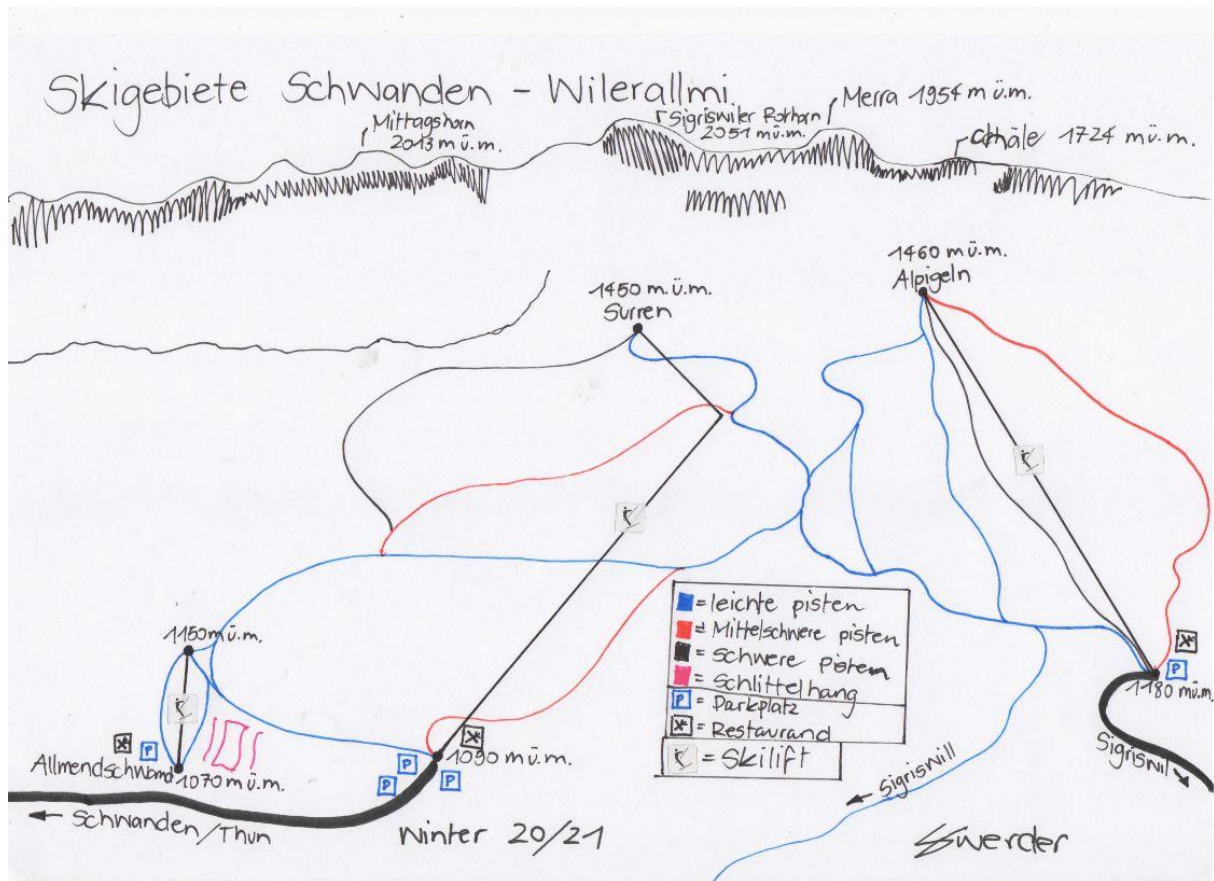 Skigebiete Schwanden - Wilerallmi
Mittagshorn
2013 m ü.m.
Sigriswiler Rothorn
2051 mü.m.
Merra 1954 m ü.m.
1724 mü.m.
1450 m.ü.m.
Surren
1460 mü.m.
Alpigeln
1150 mü.m.
Allmendschwand
1070 mü.m.
1090 mü.m.
1180 mü.m.
= leichte pisten
= Mittelschwere pisten
= Schwere pisten
= Schlittelhang
P = Parkplatz
= Restaurand
= Skilift
P
P
P
P
P
Sigriswil
Sigriswill
Schwanden/Thun
Winter 20/21